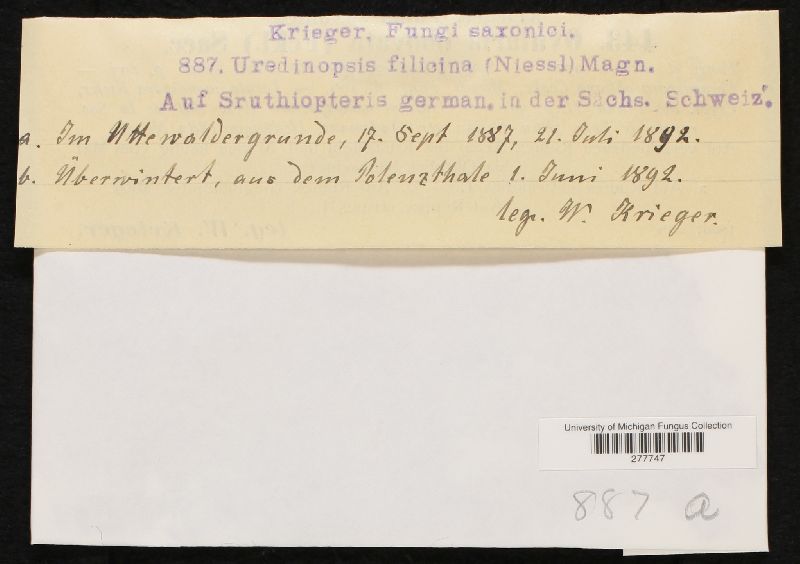 Krieger, Fungi saxonici.
887. Uredinopsis filicina (Niessl) Magn.
Auf Sruthiopteris german. in der Sächs. Schweiz.
a. Im Uttewaldergrunde, 17. Sept 1887, 21. Juli 1892.
b. Überwintert, aus dem Polenzthale 1. Juni 1892.
leg. W. Krieger.
University of Michigan Fungus Collection
277747
887 a